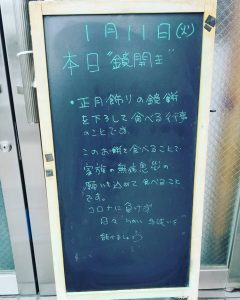 1月11日(火)
本日"鏡開き"
・正月飾りの鏡餅
を下ろして食べる行事
のことです。
このお餅を食べることで
家族の無病息災の
願いを込めて食べること
です。
コロナに負けず
日々